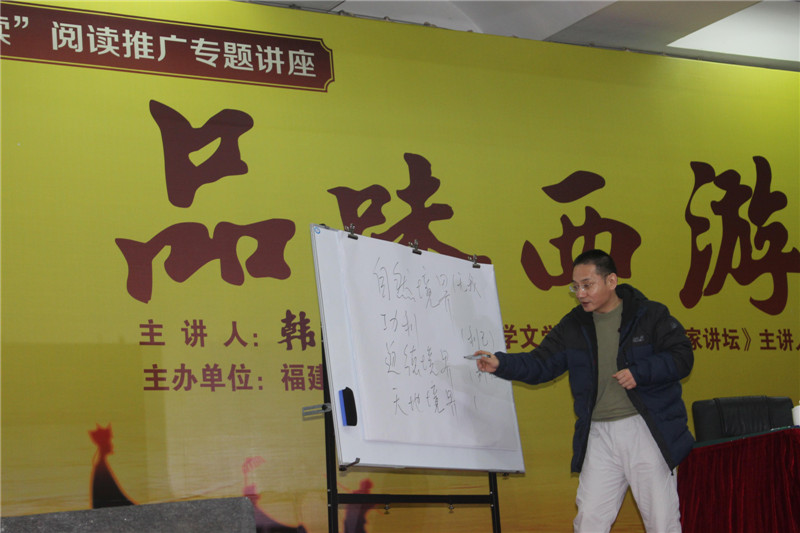 读”阅读推广专题讲座
品味西游
主讲人：韩
学文学
家讲坛》主讲人
主办单位：福建
自然境界
功利
（利己）
道德境界
天地境界